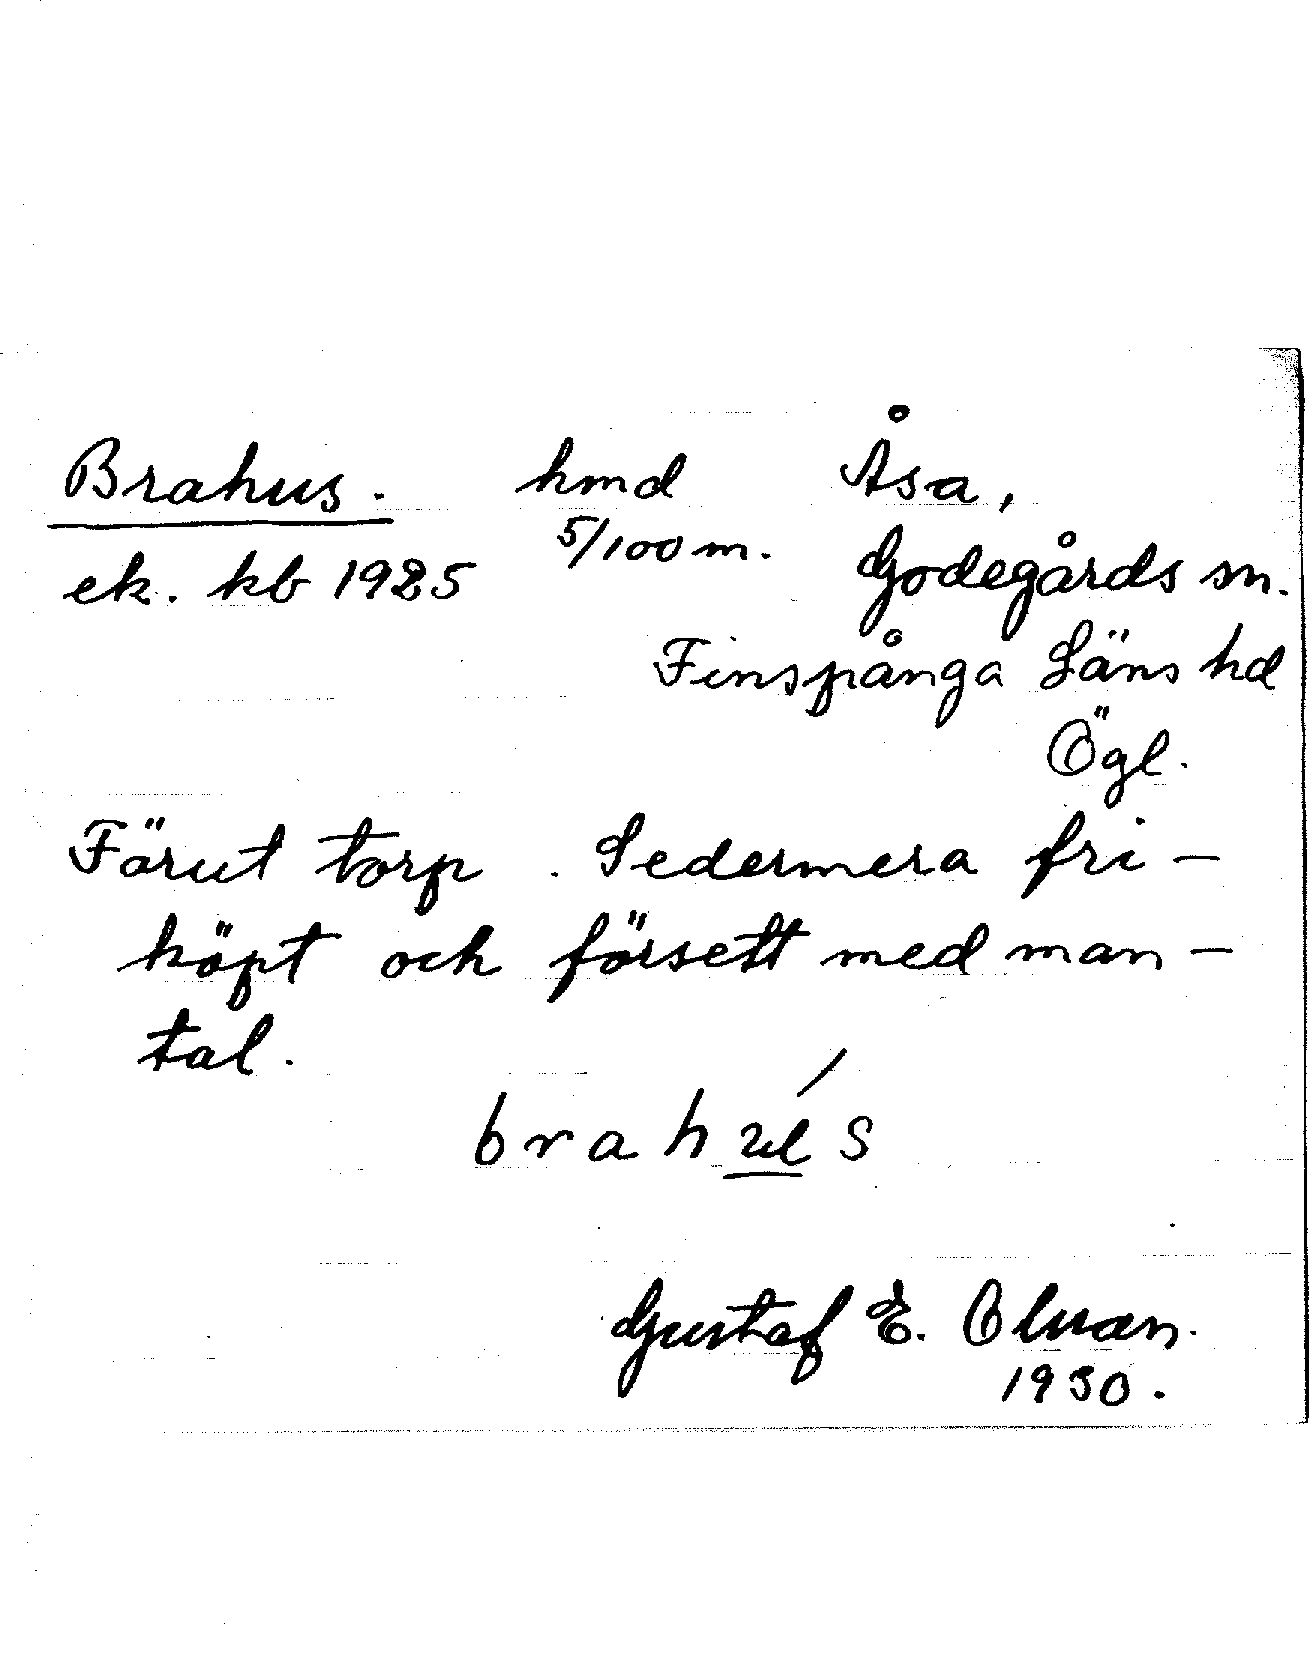 Brahus. hmd Åsa,
ek. kb 1925 5/100 m. Godegårds sn.
Finspånga Läns hd
Ögl.
Förut torp. Sedermera fri-
köpt och försett med man-
tal.
brahus
Gustaf E. 
1930.